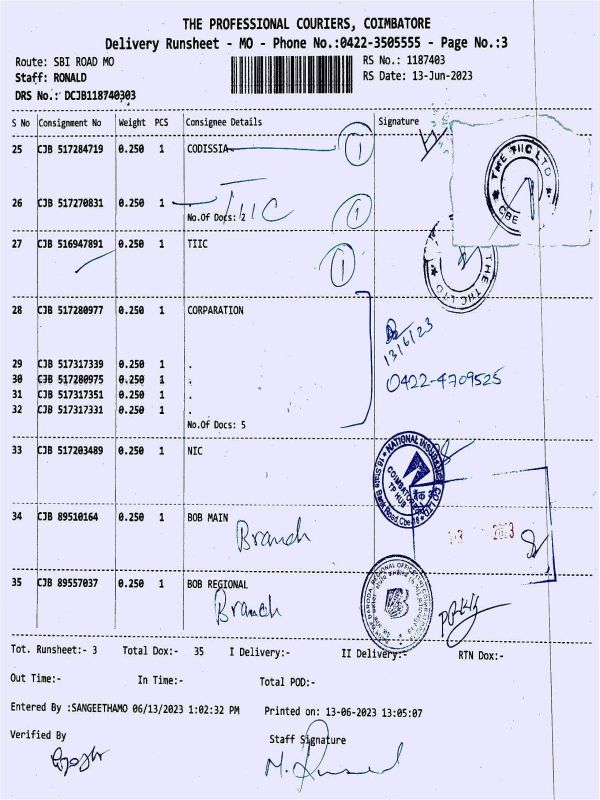 THE PROFESSIONAL COURIERS, COIMBATORE
Delivery Runsheet - MO - Phone No.:0422-3505555 - Page No.:3
Route: SBI ROAD MO
RS No.: 1187403
Staff: RONALD
RS Date: 13-Jun-2023
DRS No.: DCJB118740303
S No Consignment No Weight PCS Consignee Details Signature
25 CJB 517284719 0.250 1 CODISSIA 1
THE TIIC LTD
CBE
26 CJB 517270831 0.250 1 TIIC 1
No.Of Docs: 2
27 CJB 516947891 0.250 1 TIIC 1
THE TIIC LTD
28 CJB 517280977 0.250 1 CORPARATION
13/6/23
29 CJB 517317339 0.250 1 .
30 CJB 517280975 0.250 1 .
0422-4709525
31 CJB 517317351 0.250 1 .
32 CJB 517317331 0.250 1 .
No.Of Docs: 5
33 CJB 517203489 0.250 1 NIC
NATIONAL INSURANCE CO LTD
COIMBATORE
TP HUB
34 CJB 89510164 0.250 1 BOB MAIN
Branch
2023
35 CJB 89557037 0.250 1 BOB REGIONAL
Branch
BARODA REGIONAL OFFICE
Tot. Runsheet:- 3 Total Dox:- 35 I Delivery:- II Delivery:- RTN Dox:-
Out Time:- In Time:- Total POD:-
Entered By :SANGEETHAMO 06/13/2023 1:02:32 PM Printed on: 13-06-2023 13:05:07
Verified By
Staff Signature